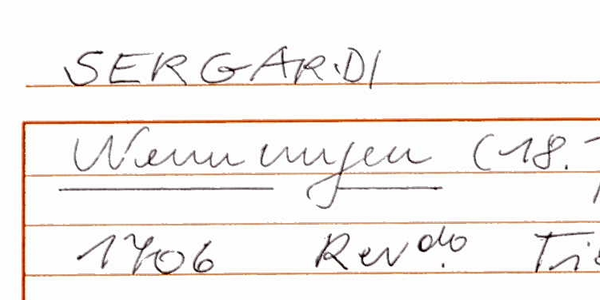 SERGARDI
Nennungen (18.
1706 Revdo.